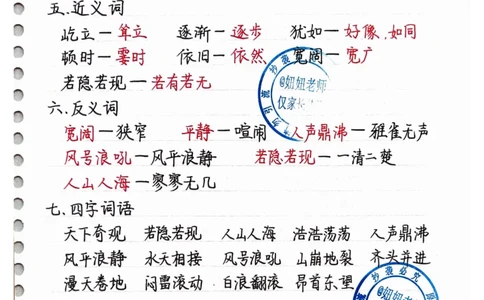 五.近义词
屹立—耸立 逐渐—逐步 犹如—好像.如同
顿时—霎时 依旧—依然 宽阔—宽广
若隐若现—若有若无
六.反义词
宽阔—狭窄 平静—喧闹 人声鼎沸—雅雀无声
风号浪吼—风平浪静 若隐若现—一清二楚
人山人海—寥寥无几
七.四字词语
天下奇观 若隐若现 人山人海 浩浩荡荡 人声鼎沸
风平浪静 水天相接 风号浪吼 山崩地裂 齐头并进
漫天卷地 闷雷滚动 白浪翻滚 昂首东望
@妞妞老师